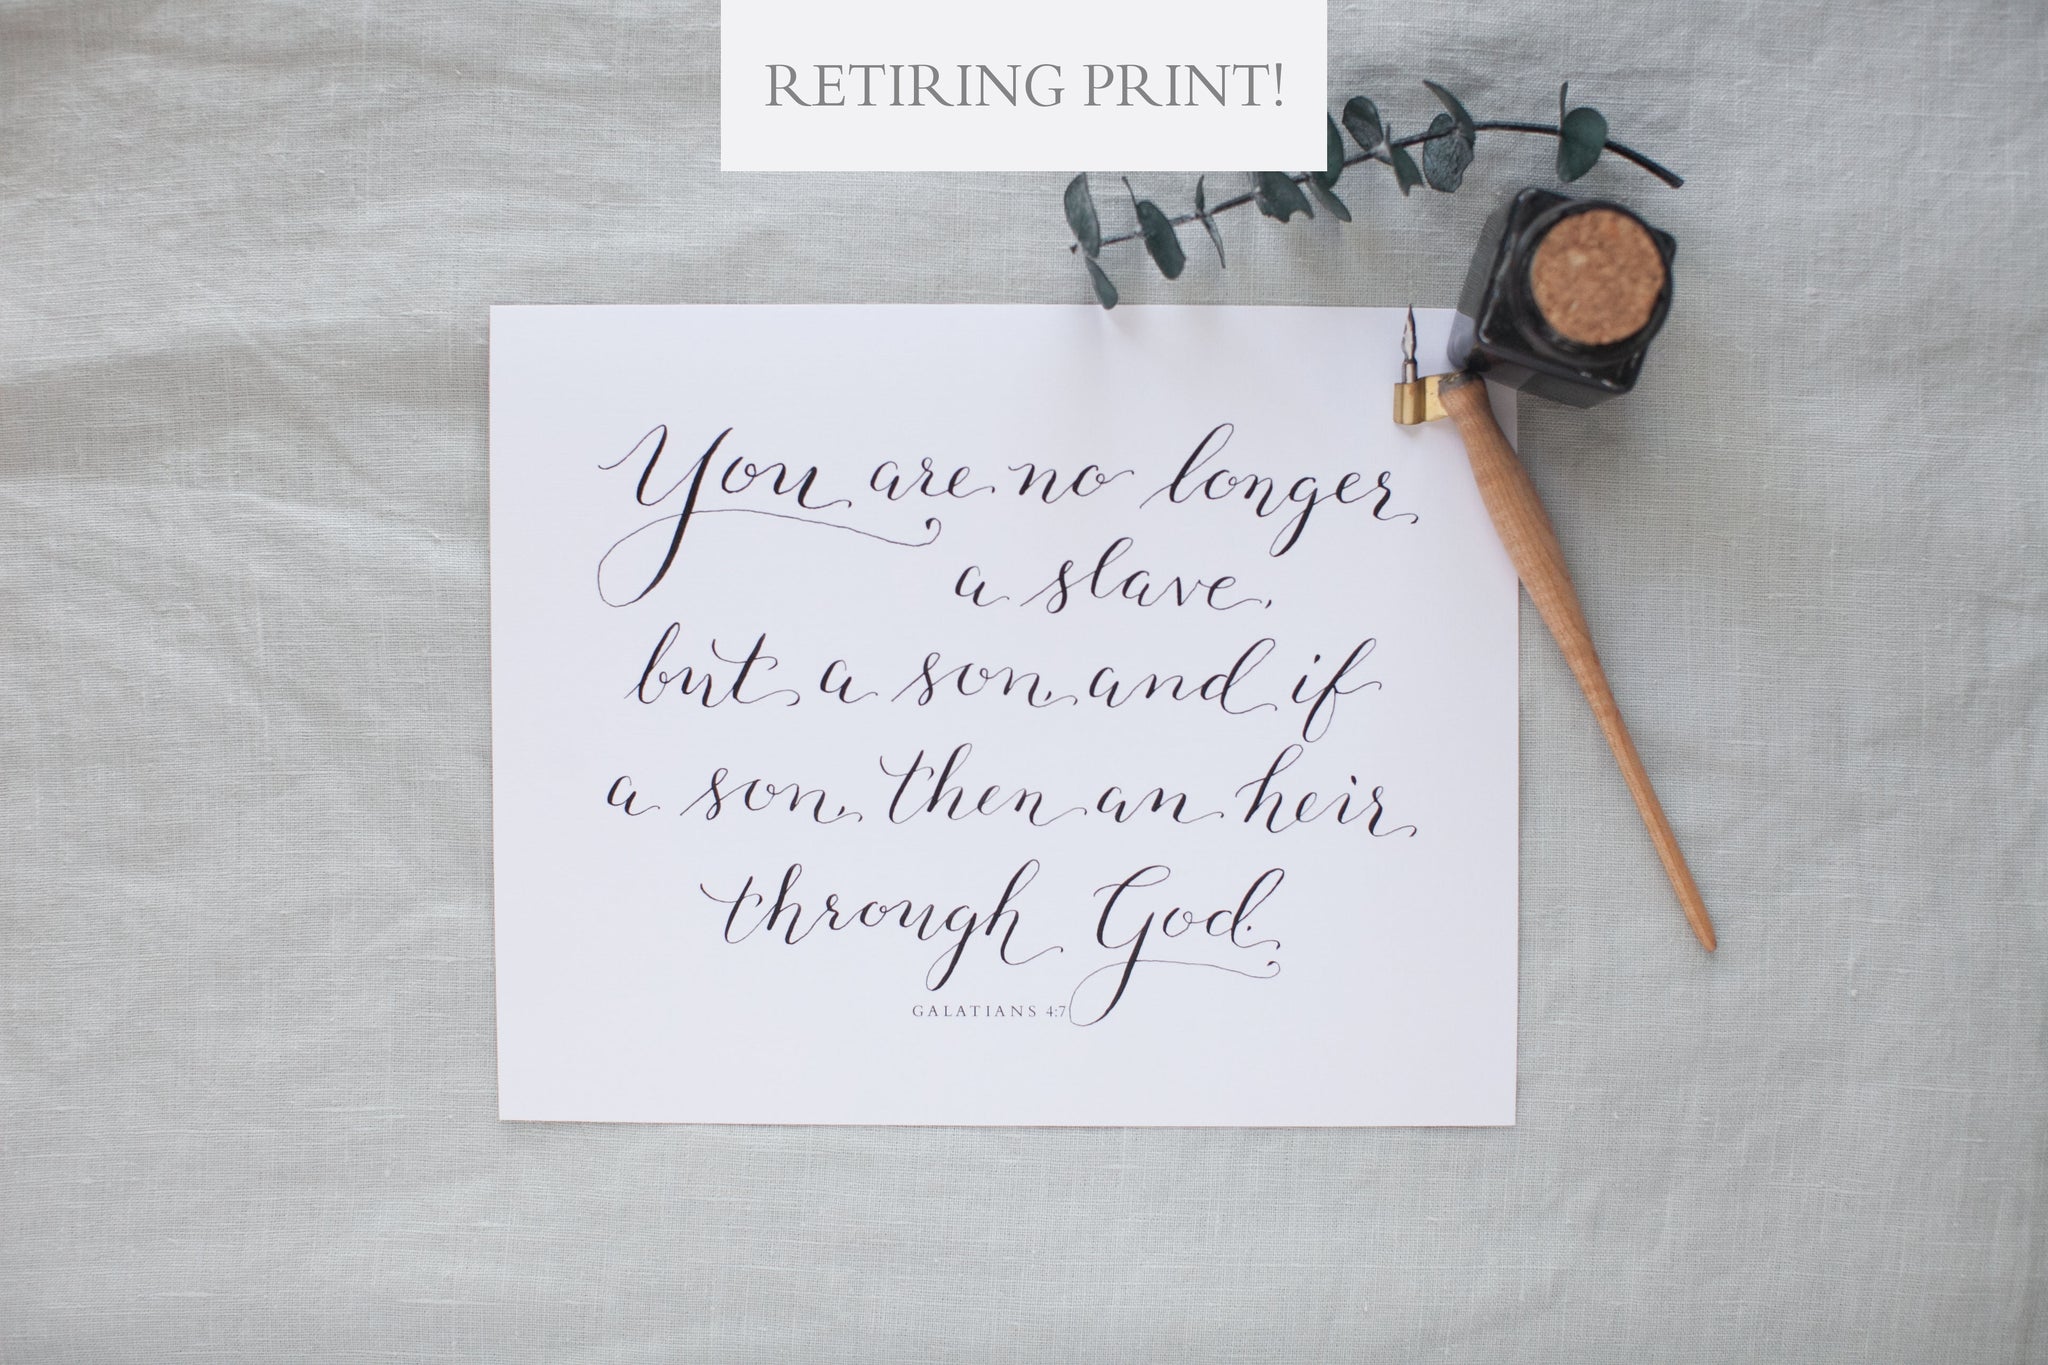 RETIRING PRINT!
You are no longer
a slave,
but a son, and if
a son, then an heir
through God.
GALATIANS 4:7